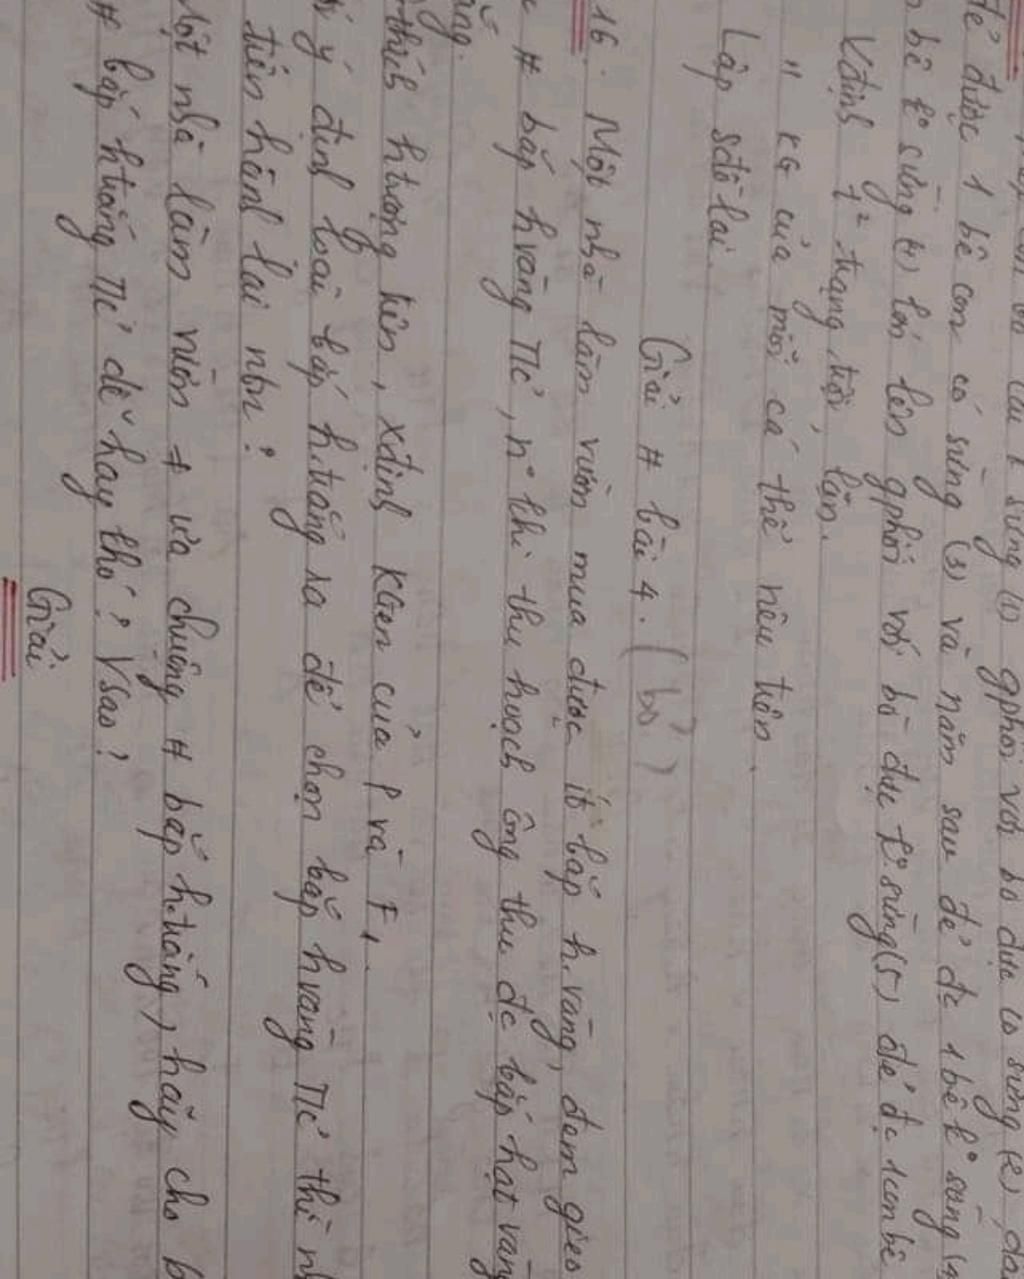 đẻ được 1 bê con có sừng (3) và năm sau đẻ đc 1 bê k° sừng
bê k° sừng (4) lớn lên gphối với bò đực k° sừng (5) đẻ đc 1 con bê
Xđịnh t² trạng trội, lặn.
" KG của mỗi cá thể nêu trên.
Lập sđồ lai.
Giải # bài 4. (bò)
16. Một nhà làm vườn mua được ít bắp h.vàng, đem gieo
# bắp hvàng TC, n° khi thu hoạch ông thu đc bắp hạt vàng
thích htượng trên, xđịnh KGen của P và F₁.
ý định loại bắp h.trắng ra để chọn bắp hvàng TC thì
tiến hành lai ntn?
Một nhà làm vườn ≠ ưa chuộng # bắp h.trắng, hãy cho b
# bắp htrắng TC dễ hay khó? Vsao?
Giải